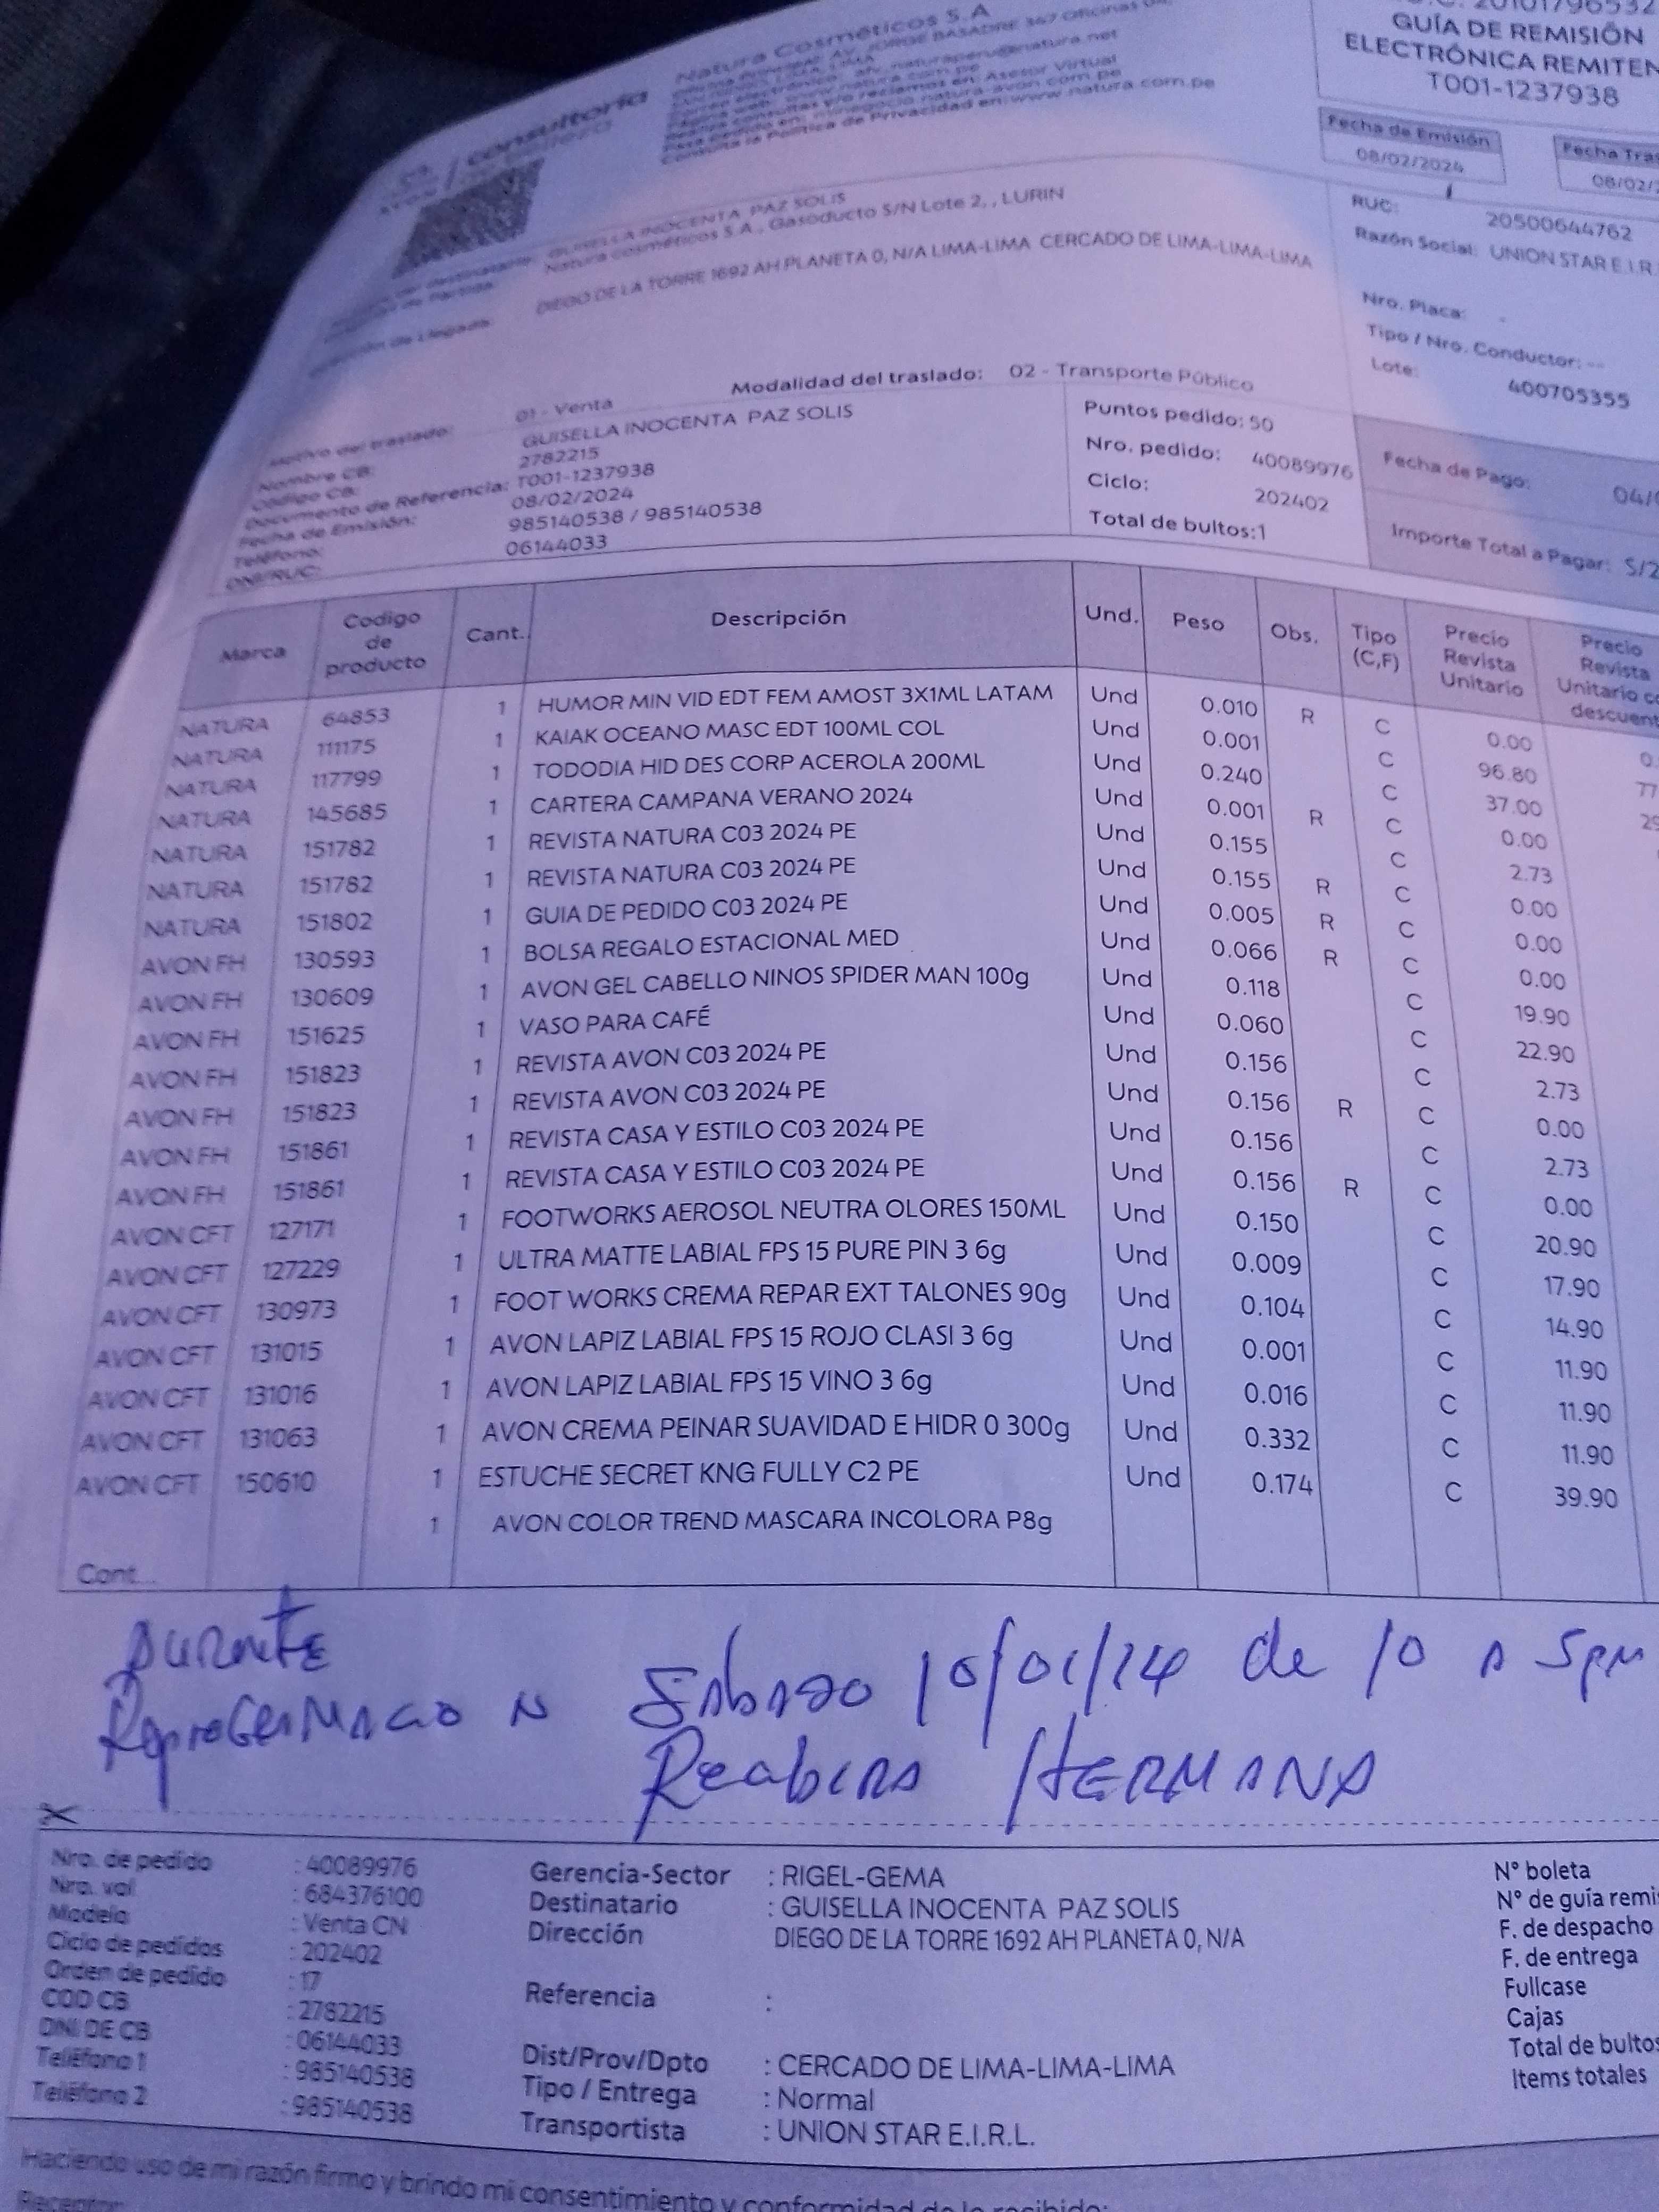 Natura Cosméticos S.A
AV. JORGE BASADRE 367 Oficinas
consultoria
Consulta la Política de Privacidad en: www.natura.com.pe
20101796532
GUÍA DE REMISIÓN
ELECTRÓNICA REMITEN
T001-1237938
Fecha de Emisión
08/02/2024
Fecha Tras
08/02/
GUISELLA INOCENTA PAZ SOLIS
Natura cosméticos S.A., Gasoducto S/N Lote 2, , LURIN
de Llegada: DIEGO DE LA TORRE 1692 AH PLANETA 0, N/A LIMA-LIMA CERCADO DE LIMA-LIMA-LIMA
RUC: 20500644762
Razón Social: UNION STAR E.I.R
Nro. Placa: -
Tipo / Nro. Conductor: --
Lote: 400705355
Motivo del traslado: 01 - Venta Modalidad del traslado: 02 - Transporte Público
Nombre CB: GUISELLA INOCENTA PAZ SOLIS
Código CB: 2782215
Documento de Referencia: T001-1237938
Fecha de Emisión: 08/02/2024
Teléfono: 985140538 / 985140538
DNI/RUC: 06144033
Puntos pedido: 50
Nro. pedido: 40089976
Ciclo: 202402
Total de bultos:1
Fecha de Pago: 04/
Importe Total a Pagar: S/2
Marca Codigo de producto Cant. Descripción Und. Peso Obs. Tipo (C,F) Precio Revista Unitario Precio Revista Unitario co descuent
NATURA 64853 1 HUMOR MIN VID EDT FEM AMOST 3X1ML LATAM Und 0.010 R C 0.00 0.
NATURA 111175 1 KAIAK OCEANO MASC EDT 100ML COL Und 0.001 C 96.80 77
NATURA 117799 1 TODODIA HID DES CORP ACEROLA 200ML Und 0.240 C 37.00 29
NATURA 145685 1 CARTERA CAMPANA VERANO 2024 Und 0.001 R C 0.00
NATURA 151782 1 REVISTA NATURA C03 2024 PE Und 0.155 C 2.73
NATURA 151782 1 REVISTA NATURA C03 2024 PE Und 0.155 R C 0.00
NATURA 151802 1 GUIA DE PEDIDO C03 2024 PE Und 0.005 R C 0.00
AVON FH 130593 1 BOLSA REGALO ESTACIONAL MED Und 0.066 R C 0.00
AVON FH 130609 1 AVON GEL CABELLO NINOS SPIDER MAN 100g Und 0.118 C 19.90
AVON FH 151625 1 VASO PARA CAFÉ Und 0.060 C 22.90
AVON FH 151823 1 REVISTA AVON C03 2024 PE Und 0.156 C 2.73
AVON FH 151823 1 REVISTA AVON C03 2024 PE Und 0.156 R C 0.00
AVON FH 151861 1 REVISTA CASA Y ESTILO C03 2024 PE Und 0.156 C 2.73
AVON FH 151861 1 REVISTA CASA Y ESTILO C03 2024 PE Und 0.156 R C 0.00
AVON CFT 127171 1 FOOTWORKS AEROSOL NEUTRA OLORES 150ML Und 0.150 C 20.90
AVON CFT 127229 1 ULTRA MATTE LABIAL FPS 15 PURE PIN 3 6g Und 0.009 C 17.90
AVON CFT 130973 1 FOOT WORKS CREMA REPAR EXT TALONES 90g Und 0.104 C 14.90
AVON CFT 131015 1 AVON LAPIZ LABIAL FPS 15 ROJO CLASI 3 6g Und 0.001 C 11.90
AVON CFT 131016 1 AVON LAPIZ LABIAL FPS 15 VINO 3 6g Und 0.016 C 11.90
AVON CFT 131063 1 AVON CREMA PEINAR SUAVIDAD E HIDR 0 300g Und 0.332 C 11.90
AVON CFT 150610 1 ESTUCHE SECRET KNG FULLY C2 PE Und 0.174 C 39.90
1 AVON COLOR TREND MASCARA INCOLORA P8g
Cont...
Sabado 10/01/24 de 10 a 5pm
HERMANA
Nro. de pedido : 40089976
Nro. val : 684376100
Modelo : Venta CN
Ciclo de pedidos : 202402
Orden de pedido : 17
COD CB : 2782215
DNI DE CB : 06144033
Teléfono 1 : 985140538
Teléfono 2 : 985140538
Gerencia-Sector : RIGEL-GEMA
Destinatario : GUISELLA INOCENTA PAZ SOLIS
Dirección DIEGO DE LA TORRE 1692 AH PLANETA 0, N/A
Referencia :
Dist/Prov/Dpto : CERCADO DE LIMA-LIMA-LIMA
Tipo / Entrega : Normal
Transportista : UNION STAR E.I.R.L.
N° boleta
N° de guía remis
F. de despacho
F. de entrega
Fullcase
Cajas
Total de bultos
Items totales
Haciendo uso de mi razón firmo y brindo mi consentimiento y conformidad de lo recibido:
Receptor: